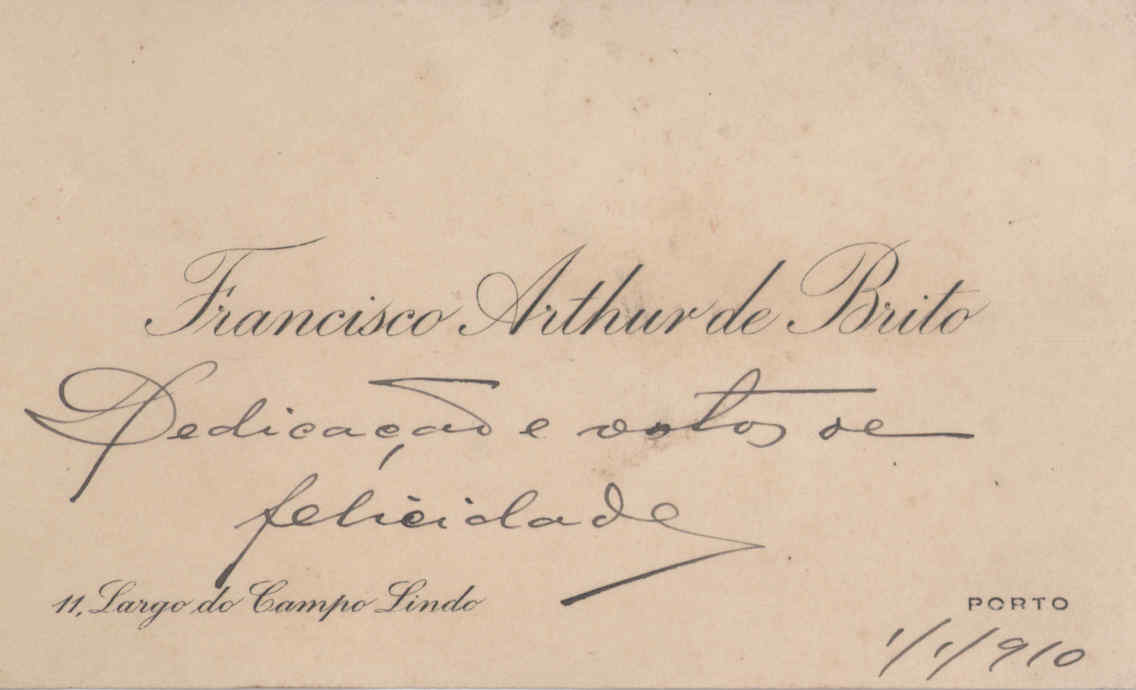 Francisco Arthur de Brito
Dedicação e votos de
felicidade
11, Largo do Campo Lindo
PORTO
1/1/910